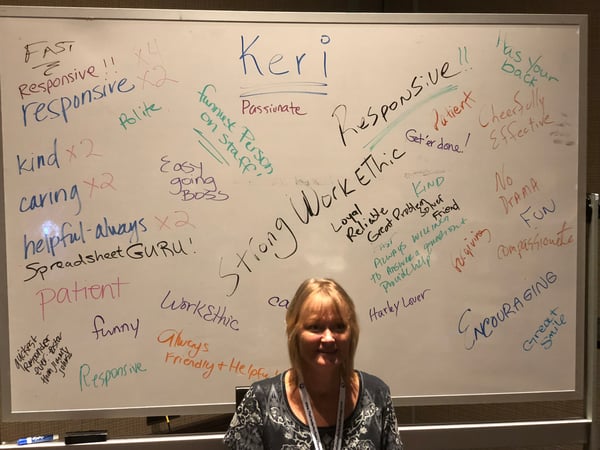 Keri
Passionate
FAST
&
RESPONSIVE!! x4
responsive x2
Polite
funniest Person
on staff!
Responsive!!
Has Your
back
Patient
Cheerfully
Effective
Get'er done!
kind x2
caring x2
helpful-always x2
Spreadsheet GURU!
EASY
going
BOSS
Strong Work Ethic
Loyal
Reliable
Great Problem
Solver
Friend
KIND
Always willing
to answer a question &
Provide help
No
DRAMA
FUN
compassionate
patient
funny
Work Ethic
ca
Harley Lover
ENCOURAGING
Great
Smile
quickest
Responder
ever - faster
than Jimmy
Johns
Responsive
Always
Friendly & Helpful